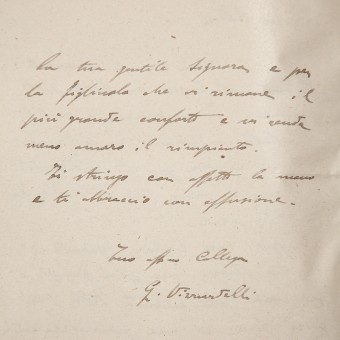 la tua gentile Signora e per
la figliuola che vi rimane il
più grande conforto e vi renda
meno amaro il rimpianto.
Ti stringo con affetto la mano
e ti abbraccio con effusione.
Tuo aff.mo Collega
G.